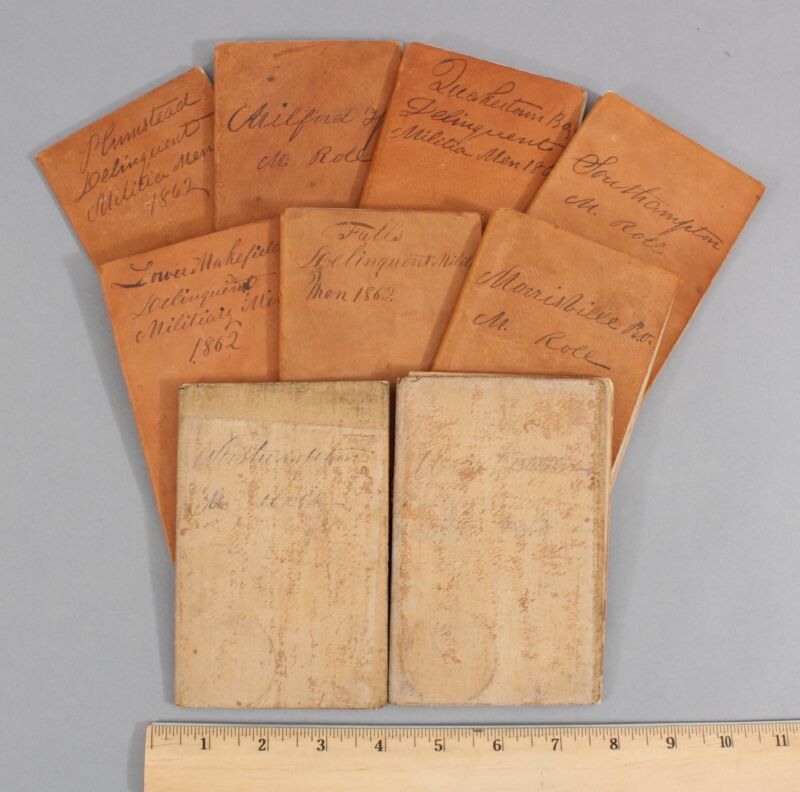 Plumstead
Delinquent
Militia Men
1862
Milford
M. Roll
Quakertown Bo
Delinquent
Militia Men 186
Southampton
M. Roll
Lower Makefield
Delinquent
Militiary Me
1862
Falls
Delinquent Milit
Men 1862.
Morrisville Bo.
M. Roll
Northampton
M. Roll
1 2 3 4 5 6 7 8 9 10 11